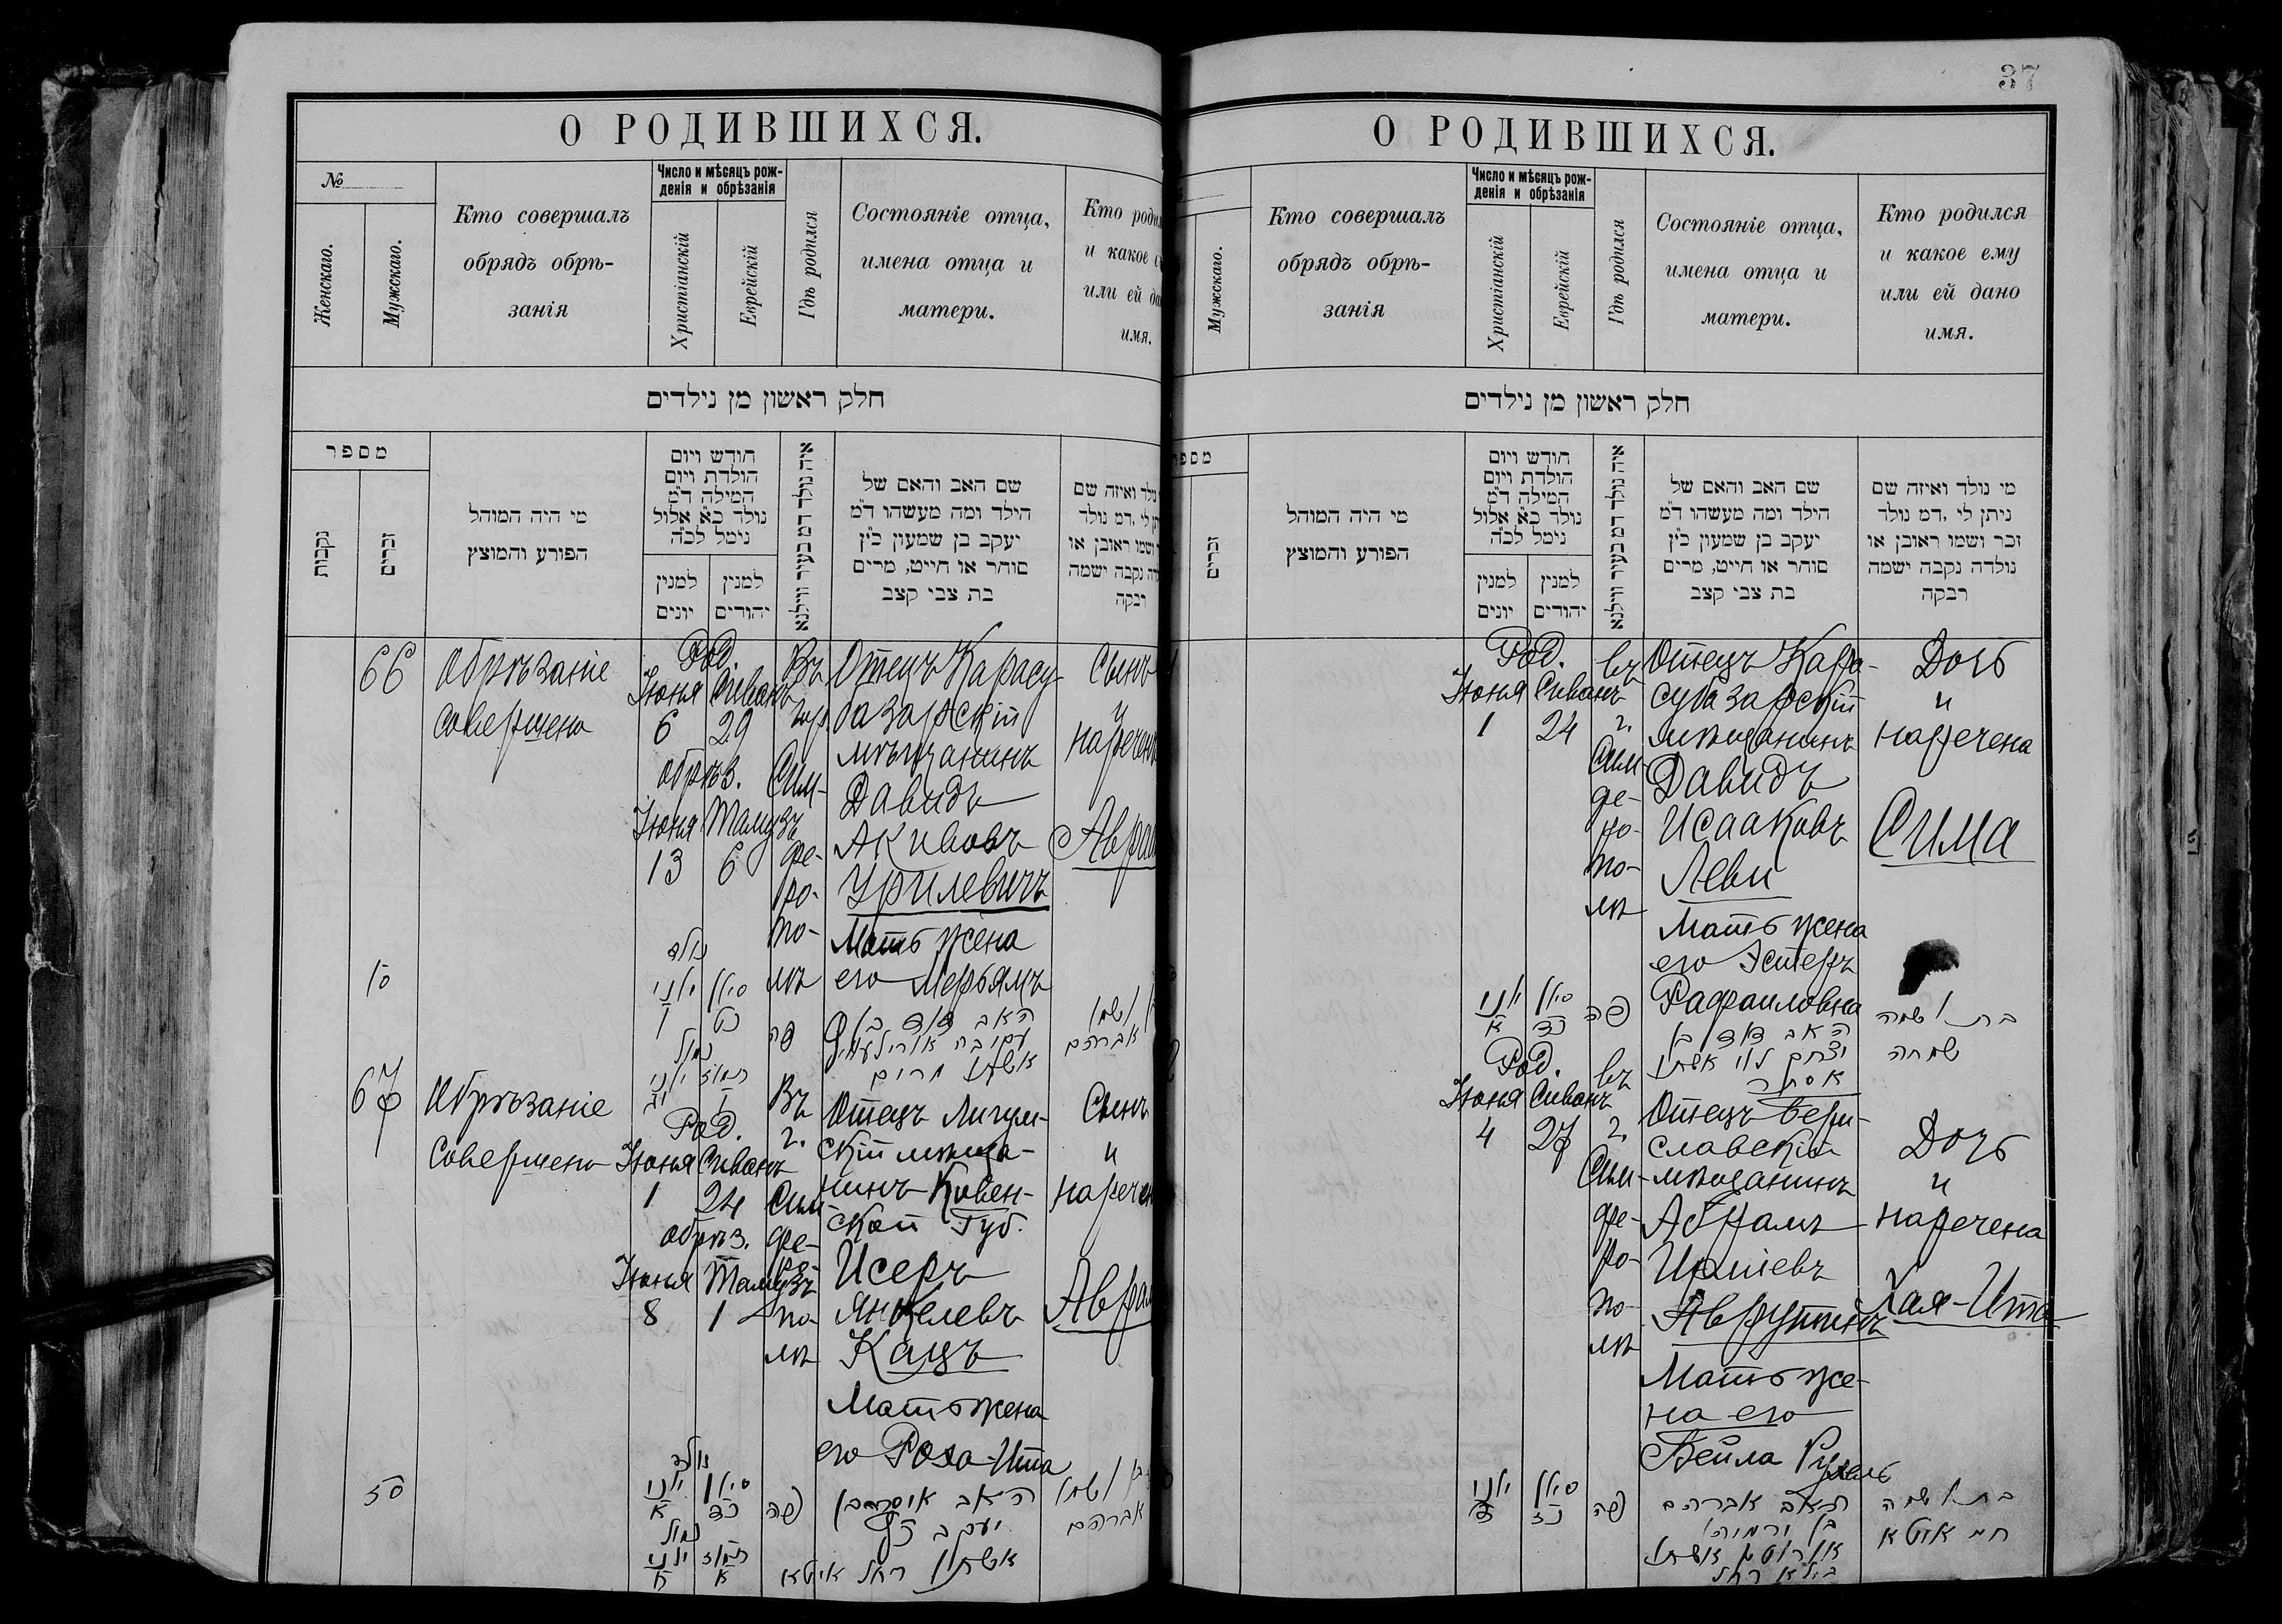 О РОДИВШИХСЯ.
№
Женскаго.
Мужскаго.
Кто совершалъ
обрядъ обрѣ-
занія
Число и мѣсяцъ рож-
денія и обрѣзанія
Христіанскій
Еврейскій
Гдѣ родился
Состояніе отца,
имена отца и
матери.
Кто
и какое
или ей
имя.
חלק ראשון מן נילדים
מספר
נקבות
זכרים
מי היה המוהל
הפורע והמוצץ
חודש ויום
הולדת ויום
המילה ד״מ
נולד כ״א אלול
נימל לכ״ח
למנין
יונים
למנין
יהודים
איה נולד דמ בעיר ווילנא
שם האב והאם של
הילד ומה מעשהו ד״מ
יעקב בן שמעון כ״ץ
סוחר או חייט, מרים
בת צבי קצב
ואיזה שם
לי, דמ נולד
ושמו ראובן או
נקבה ישמה
רבקה
66
Обрѣзаніе
совершено
Род.
Іюня Сиванъ
6 29
обрѣз.
Іюня Тамузъ
13 6
Въ
гор.
Сим-
фе-
ро-
по-
лѣ
Отецъ Карасу-
базарскій
мѣщанинъ
Давидъ
Акивовъ
Урилевичъ
Мать жена
его Мерьямъ
Сынъ
и
נולד
סיון יוני
פה
האב דוד בן
אשתו מרים
אברהם
67
Обрѣзаніе
Совершено
Род.
Іюня Сиванъ
1 24
обрѣз.
Іюня Тамузъ
8 1
Въ
г.
Сим
фе-
ро-
по-
лѣ
Отецъ Лигум-
скій мѣща-
нинъ Ковен-
ской Губ.
Исеръ
Янкелевъ
Кацъ
Мать жена
его Роха-Ита
Сынъ
и
נולד
סיון יוני
כד א
פה
יעקב כץ
אשתו רחל איטא
אברהם
37
О РОДИВШИХСЯ.
Мужскаго.
Кто совершалъ
обрядъ обрѣ-
занія
Число и мѣсяцъ рож-
денія и обрѣзанія
Христіанскій
Еврейскій
Гдѣ родился
Состояніе отца,
имена отца и
матери.
Кто родился
и какое ему
или ей дано
имя.
חלק ראשון מן נילדים
זכרים
מי היה המוהל
הפורע והמוצץ
חודש ויום
הולדת ויום
המילה ד״מ
נולד כ״א אלול
נימל לכ״ח
למנין
יונים
למנין
יהודים
איה נולד דמ בעיר ווילנא
שם האב והאם של
הילד ומה מעשהו ד״מ
יעקב בן שמעון כ״ץ
סוחר או חייט, מרים
בת צבי קצב
מי נולד ואיזה שם
ניתן לי, דמ נולד
זכר ושמו ראובן או
נולדה נקבה ישמה
רבקה
Род.
Іюня Сиванъ
1 24
въ
г.
Сим
фе-
ро-
по-
лѣ
Отецъ Кара-
субазарскій
мѣщанинъ
Давидъ
Исааковъ
Леви
Мать жена
его Эстеръ
Рафаиловна
Дочь
и
наречена
Сима
סיון יוני
כד א
פה
האב דוד בן
יצחק לוי אשתו
אסתר
בת ושמה
שמחה
Род.
Іюня Сиванъ
4 27
въ
г.
Сим-
фе-
ро-
по-
лѣ
Отецъ Бери-
славскій
мѣщанинъ
Абрамъ
Мать же-
на его
Бейла
Дочь
и
наречена
Хая-Ита
סיון יוני
כז ד
פה
האב אברהם
בת ושמה
חיה איטא